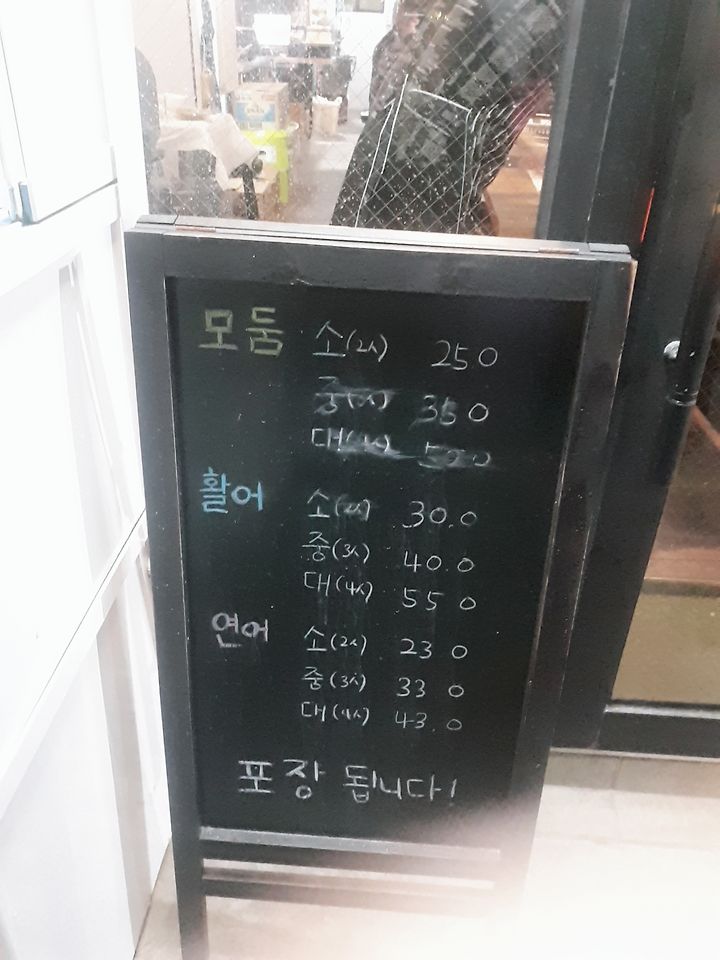 모둠 소(2人) 25 0
중(3人) 35 0
대 50 0
활어 소(2人) 30.0
중(3人) 40.0
대(4人) 55 0
연어 소(2人) 23 0
중(3人) 33 0
대(4人) 43.0
포장 됩니다!